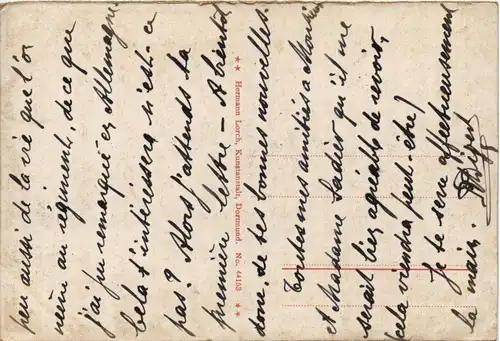 peu aussi de la vie que l'on
mène au régiment, de ce que
j'ai pu remarqué en Allemagne
cela t'intéressera n'est-ce
pas? Alors j'attends ta
première lettre - A bientôt
donc, de tes bonnes nouvelles.
Toutes mes amitiés à Monsieur
et Madame Sadier qu'il me
serait bien agréable de revoir,
cela viendra peut-être!
Je te serre affectueusement
la main.
** Hermann Lorch, Kunstanstalt, Dortmund. No. 44153 **